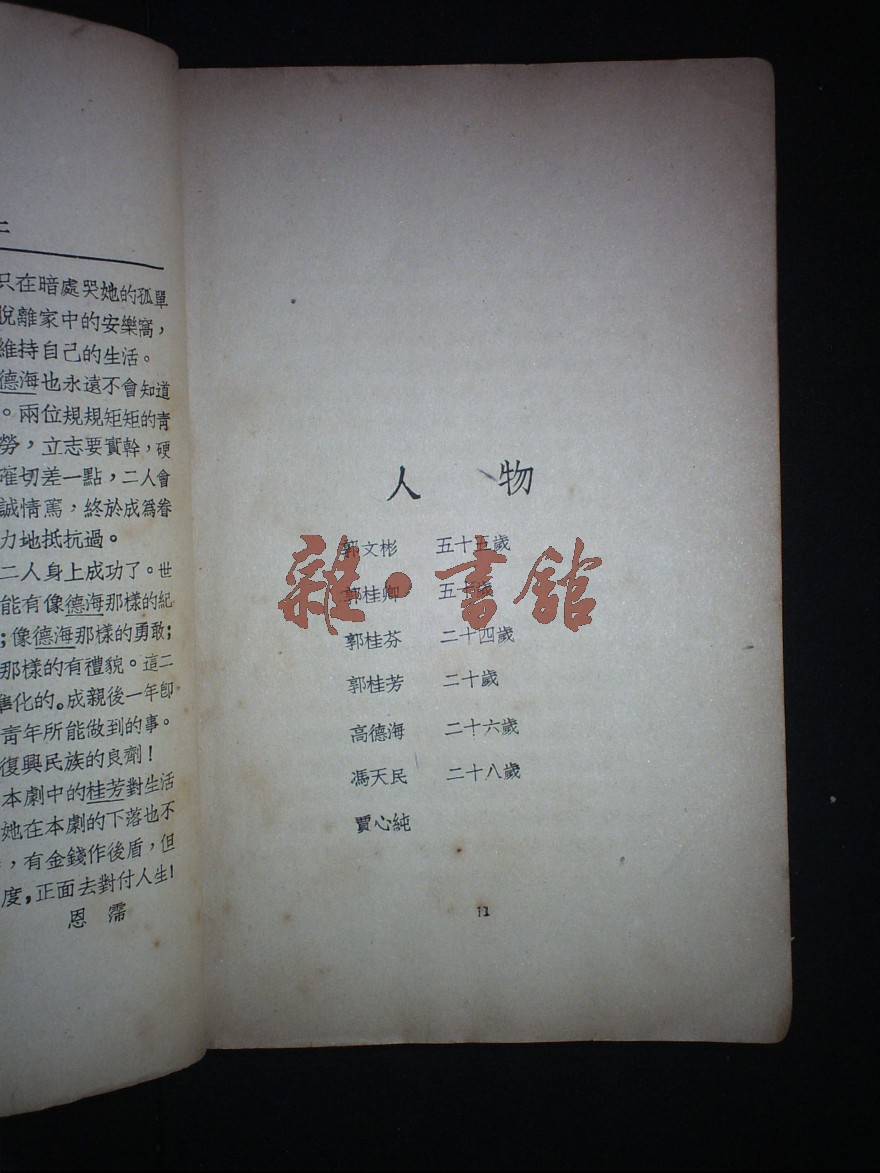 二
只在暗處哭她的孤單
離家中的安樂窩，
維持自己的生活。
德海也永遠不會知道
。兩位規規矩矩的青
勞，立志要實幹，硬
確切差一點，二人會
誠情篤，終於成為眷
力地抵抗過。
二人身上成功了。世
能有像德海那樣的紀
；像德海那樣的勇敢；
那樣的有禮貌。這二
化的。成親後一年卽
青年所能做到的事。
復興民族的良劑！
本劇中的桂芳對生活
她在本劇的下落也不
，有金錢作後盾，但
度，正面去對付人生！
恩霈
人 物
郭文彬 五十五歲
郭桂卿 五十歲
郭桂芬 二十四歲
郭桂芳 二十歲
高德海 二十六歲
馮天民 二十八歲
賈心純
11
雜·書館